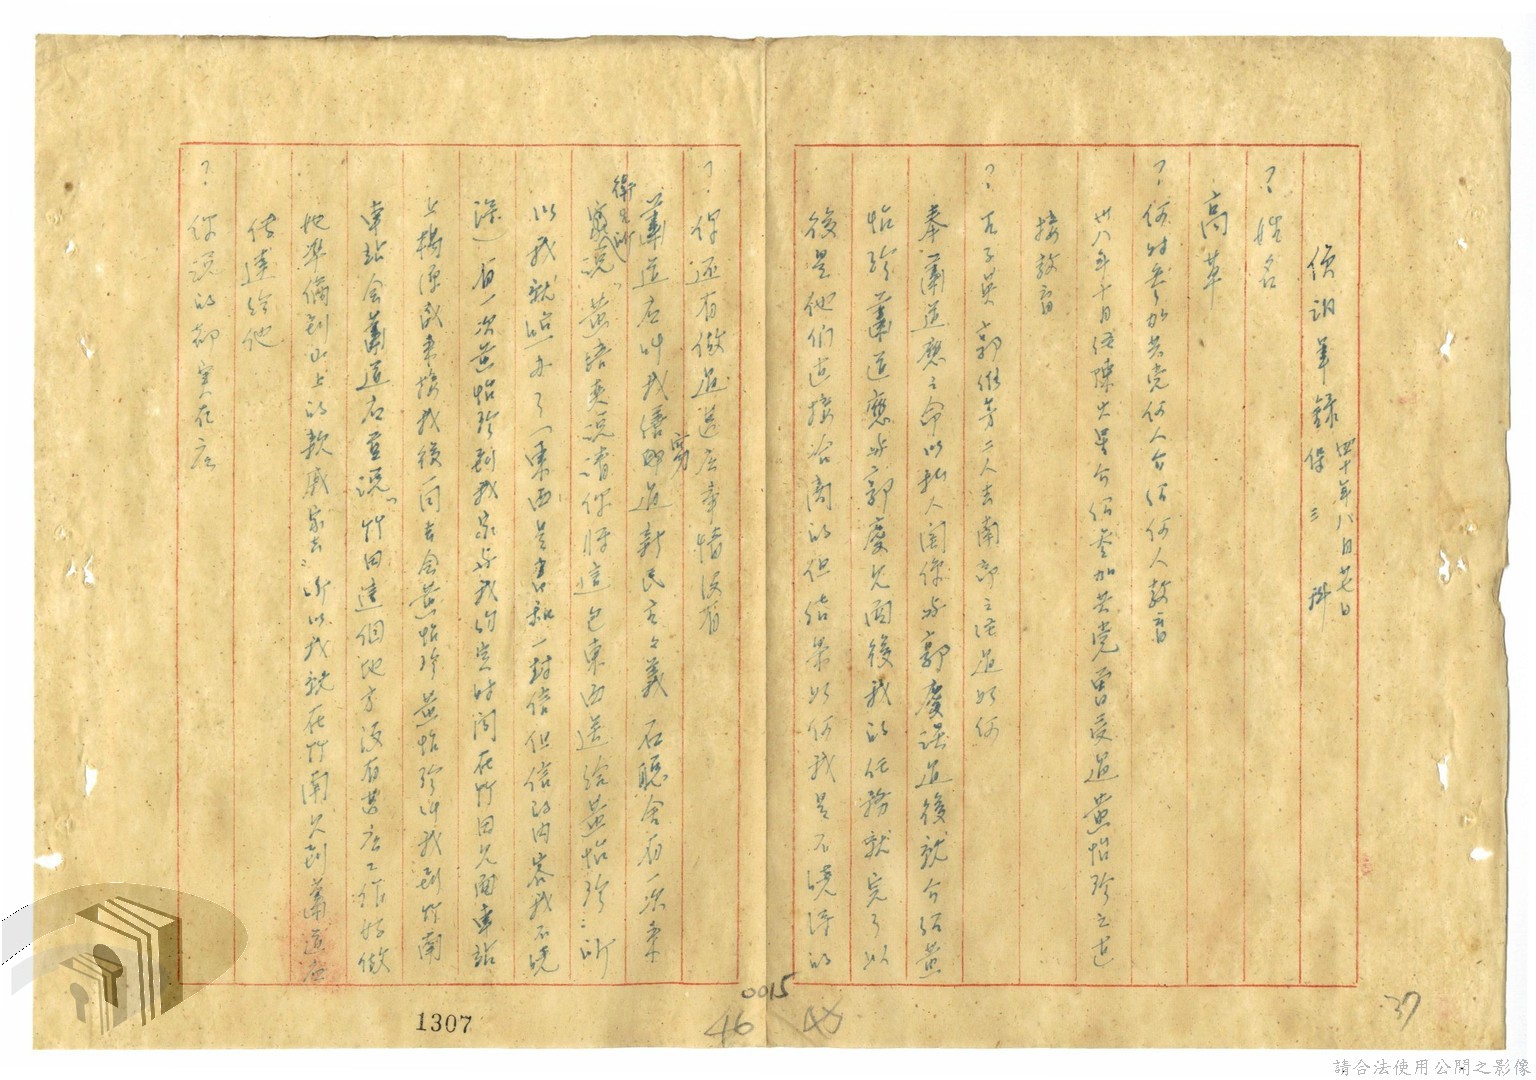 偵訊筆錄 四十年八月廿七日 保三科
?姓名
高草
?何時參加共党何人介紹何人教育
卅八年十月經陳火星介紹參加共党曾受過黃怡珍之直
接教育
? 郭維芳二人去南部之經過如何
奉蕭道應之命以私人關係与郭慶 過後就介紹黃
怡珍蕭道應与郭慶見面後我的任務就完了以
後是他們直接洽商的但結果如何我是不曉得的
?你还有做過甚广事情没有
蕭道应叫我繕寫過新民主主義 有一次來
說黃培奕說請你將這包東西送給黃怡珍所
以我就照办了(東西是書和一封信但信的內容我不曉
得)有一次黃怡珍到我家与我約定時間在竹田見面車站
上楊源盛來接我後一同去會黃怡珍黃怡珍叫我到竹南
車站會蕭道应並說竹田這個地方没有甚广工作好做
他準備到山上的親戚家去所以我就在竹南見到蕭道应
傳達給他
?你說的都实在広
0015
46
1307
37
請合法使用公開之影像